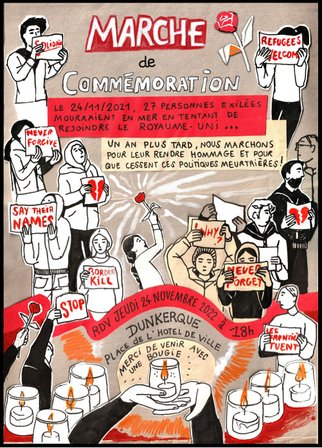 MARCHE
de
COMMÉMORATION
LE 24/11/2021, 27 PERSONNES EXILÉES
MOURRAIENT EN MER EN TENTANT DE
REJOINDRE LE ROYAUME-UNI ...
UN AN PLUS TARD, NOUS MARCHONS
POUR LEUR RENDRE HOMMAGE ET POUR
QUE CESSENT CES POLITIQUES MEURTRIÈRES!
REFUGEES
WELCOME
NEVER
FORGIVE
SAY THEIR
NAMES
WHY?
BORDER
KILL
NEVER
FORGET
STOP
LES FRONTIÈ
TUENT
RDV JEUDI 24 NOVEMBRE 2022 à 18h
DUNKERQUE
PLACE DE L'HOTEL DE VILLE
MERCI DE VENIR AVEC
UNE BOUGIE